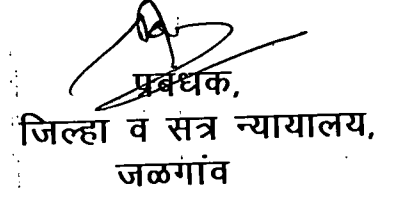 प्रबंधक,
जिल्हा व सत्र न्यायालय,
जळगांव